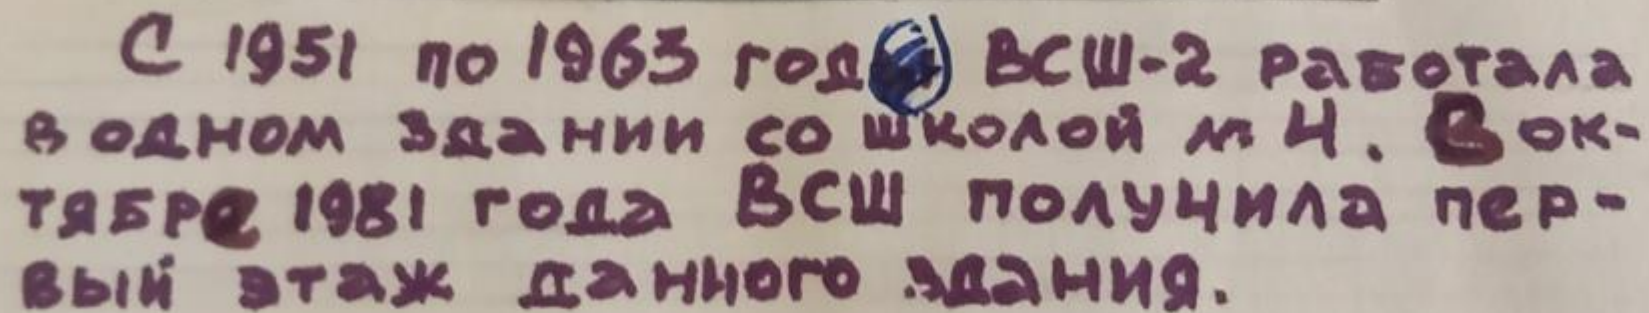 С 1951 по 1963 год ВСШ-2 работала
в одном здании со школой № 4. В ок-
тябре 1981 года ВСШ получила пер-
вый этаж данного здания.